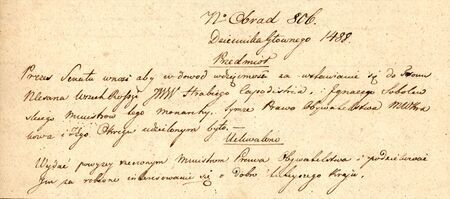 No Obrad 806.
Dziennika Głownego 1488.
Przedmiot
Prezes Senatu wnosi aby w dowod wdzięczności za wstawianie się do Tronu
Wszech Rossyi JWW Hrabiego Capodistria, i Ignacego Sobolew
skiego Ministrow tego Monarchy, tymże Prawo Obywatelstwa M. Krako
kowa i Jego Okręgu udzielonym było.—
Uchwalono
Wydać powyżey rzeczonym Ministrom Prawa Obywatelstwa i podziękować
Im za robione interessowanie się o dobro tuteyszego kraju.